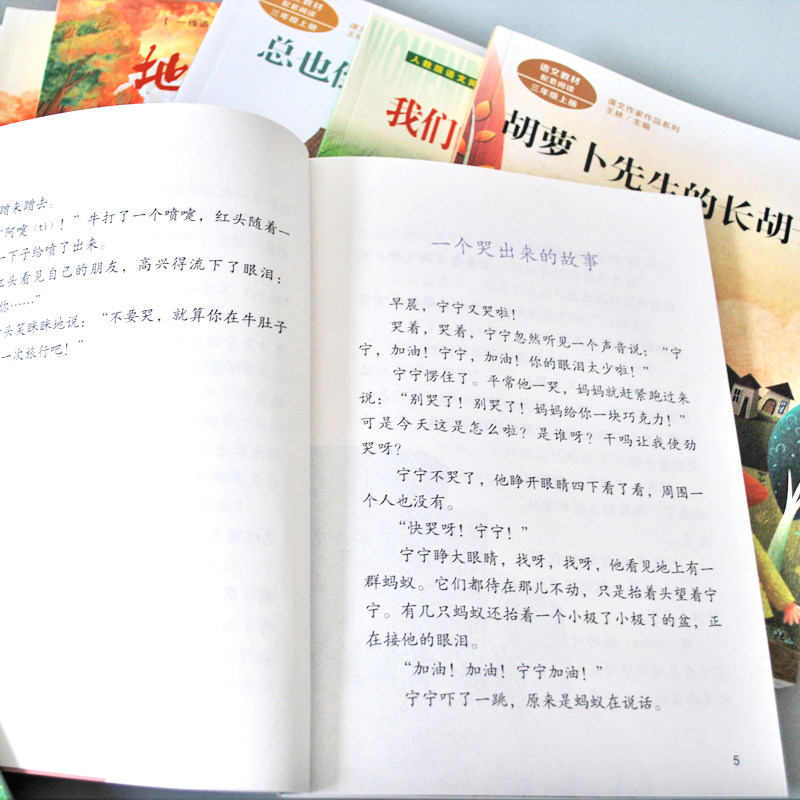 语文教材
配套阅读
三年级上册
总也
人教版语文
我们
地
语文教材
配套阅读
三年级上册
课文作家作品系列
王林/主编
胡萝卜先生的长胡
蹭来蹭去。
“阿嚏（tì）！”牛打了一个喷嚏，红头随着一
下子给喷了出来。
红头看见自己的朋友，高兴得流下了眼泪：
你……”
头笑眯眯地说：“不要哭，就算你在牛肚子
一次旅行吧！”
一个哭出来的故事
早晨，宁宁又哭啦！
哭着，哭着，宁宁忽然听见一个声音说：“宁
宁，加油！宁宁，加油！你的眼泪太少啦！”
宁宁愣住了。平常他一哭，妈妈就赶紧跑过来
说：“别哭了！别哭了！妈妈给你一块巧克力！”
可是今天这是怎么啦？是谁呀？干吗让我使劲
哭呀？
宁宁不哭了，他睁开眼睛四下看了看，周围一
个人也没有。
“快哭呀！宁宁！”
宁宁睁大眼睛，找呀，找呀，他看见地上有一
群蚂蚁。它们都待在那儿不动，只是抬着头望着宁
宁。有几只蚂蚁还抬着一个小极了小极了的盆，正
在接他的眼泪。
“加油！加油！宁宁加油！”
宁宁吓了一跳，原来是蚂蚁在说话。
5